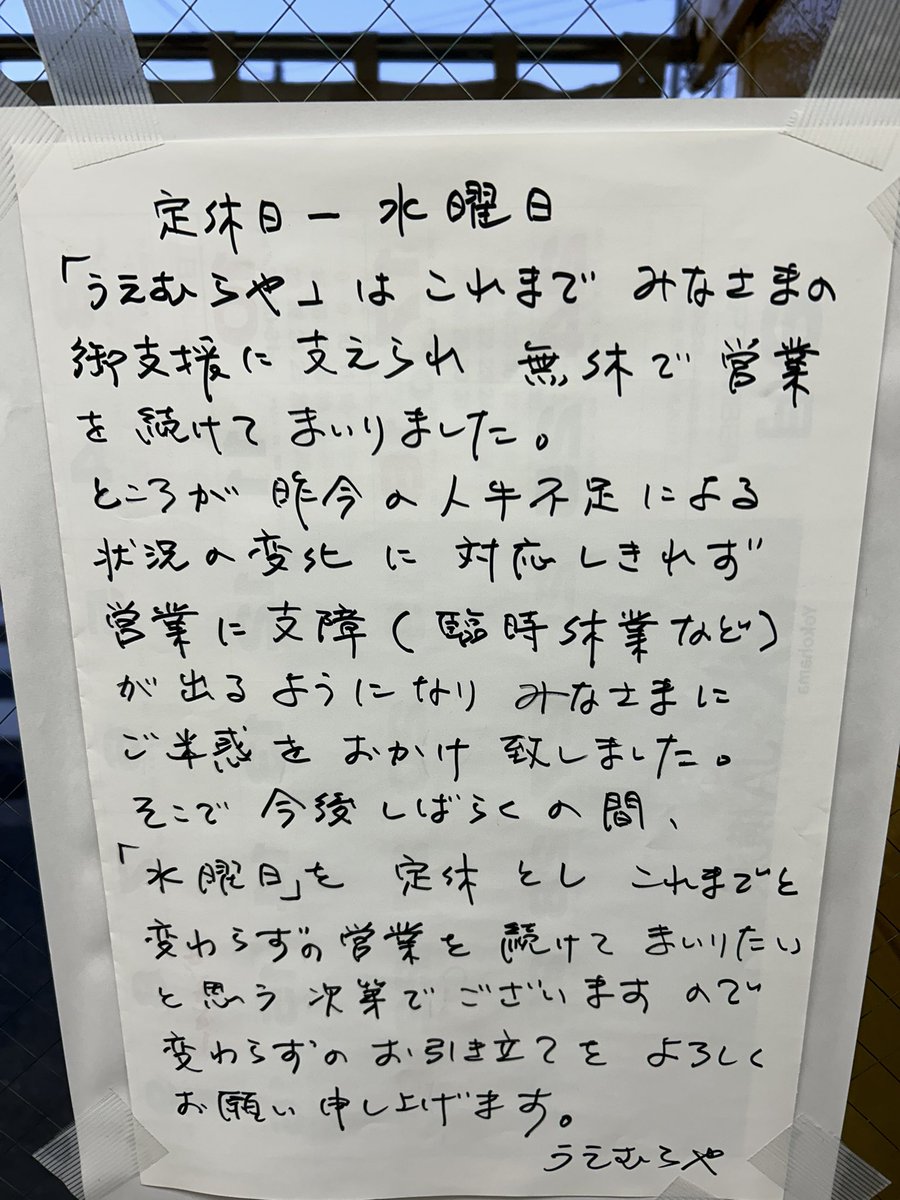 定休日ー水曜日
「うえむらや」はこれまで みなさまの
御支援に支えられ 無休で営業
を続けてまいりました。
ところが昨今の人手不足による
状況の変化に対応しきれず
営業に支障(臨時休業など)
が出るようになり みなさまに
ご迷惑をおかけ致しました。
そこで今後しばらくの間、
「水曜日」を定休とし これまでと
変わらずの営業を続けてまいりたい
と思う次第でございますので
変わらずのお引き立てをよろしく
お願い申し上げます。
うえむらや
yokohama